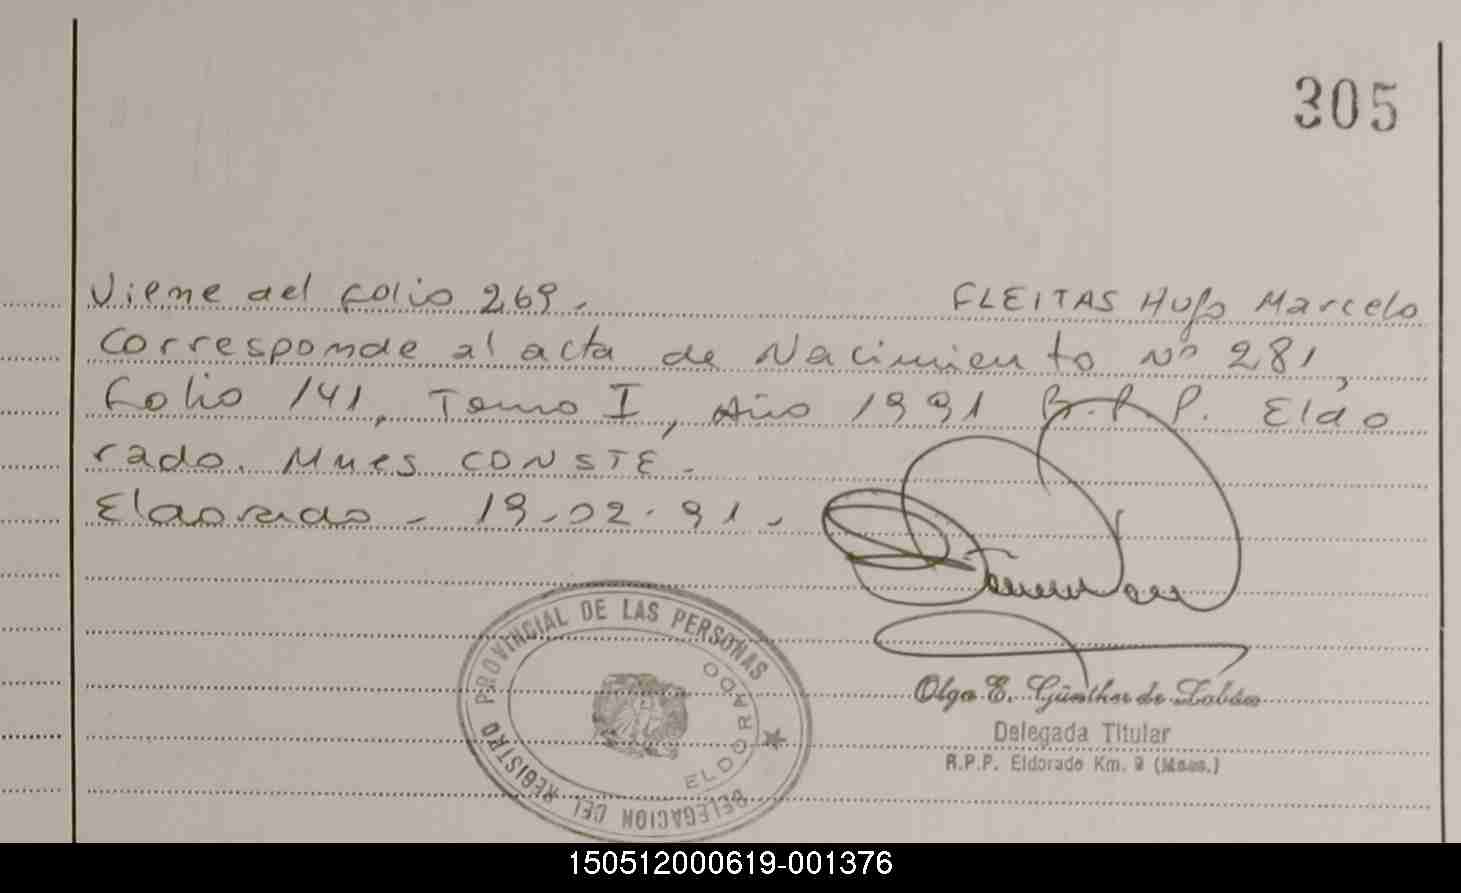 305
Viene del folio 269. FLEITAS Hugo Marcelo
Corresponde al acta de Nacimiento Nº 281,
Folio 141, Tomo I, Año 1991 R.P.P. Eldo
rado. Mnes CONSTE.
Eldorado - 19-02-91.
DELEGACION DEL REGISTRO PROVINCIAL DE LAS PERSONAS
ELDORADO
Olga E. Günther de
Delegada Titular
R.P.P. Eldorado Km. 9 (Mnes.)
150512000619-001376